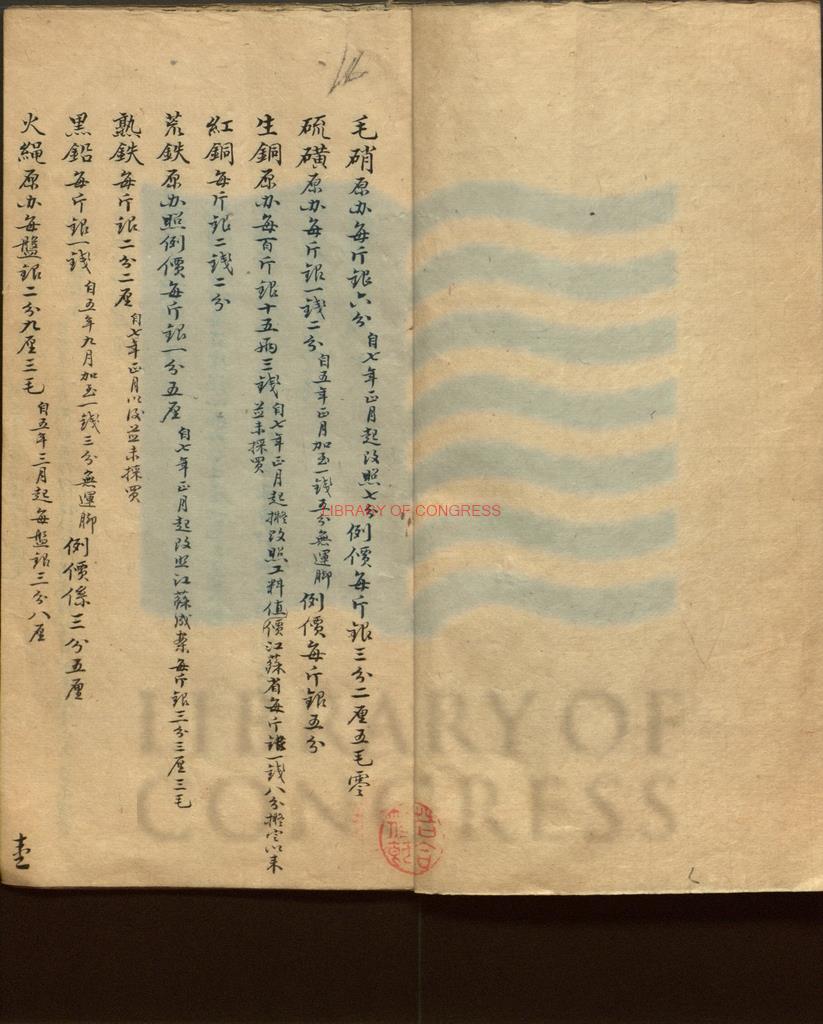 毛硝原办每斤銀六分自七年正月起改照七分例價每斤銀三分二厘五毛零
硫磺原办每斤銀一錢二分自五年正月加至一錢五分無運脚例價每斤銀五分
生銅原办每百斤銀十五兩三錢自七年正月起擬改照工料值價江蘇省每斤銀一錢八分擬定以来
並未採買
紅銅每斤銀二錢二分
荒鉄原办照例價每斤銀一分五厘自七年正月起改照江蘇成案每斤銀三分三厘三毛
熟鉄每斤銀二分二厘自七年正月以後並未採買
黑鉛每斤銀一錢自五年九月加至一錢三分無運脚例價係三分五厘
火繩原办每盤銀二分九厘三毛自五年三月起每盤銀三分八厘
LIBRARY OF CONGRESS
LIBRARY OF
CONGRESS